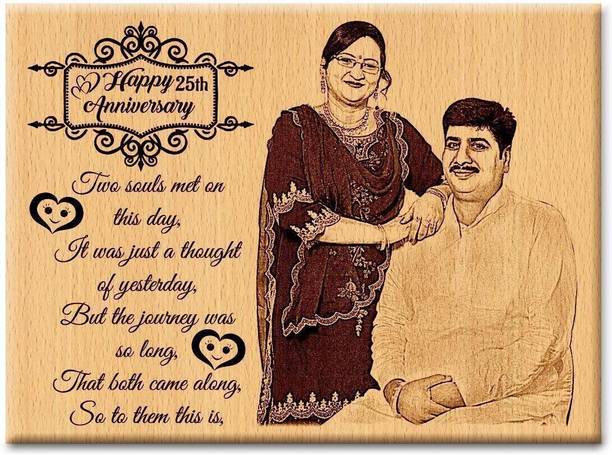 Happy 25th
Anniversary
Two souls met on
this day,
It was just a thought
of yesterday,
But the journey was
so long,
That both came along,
So to them this is,